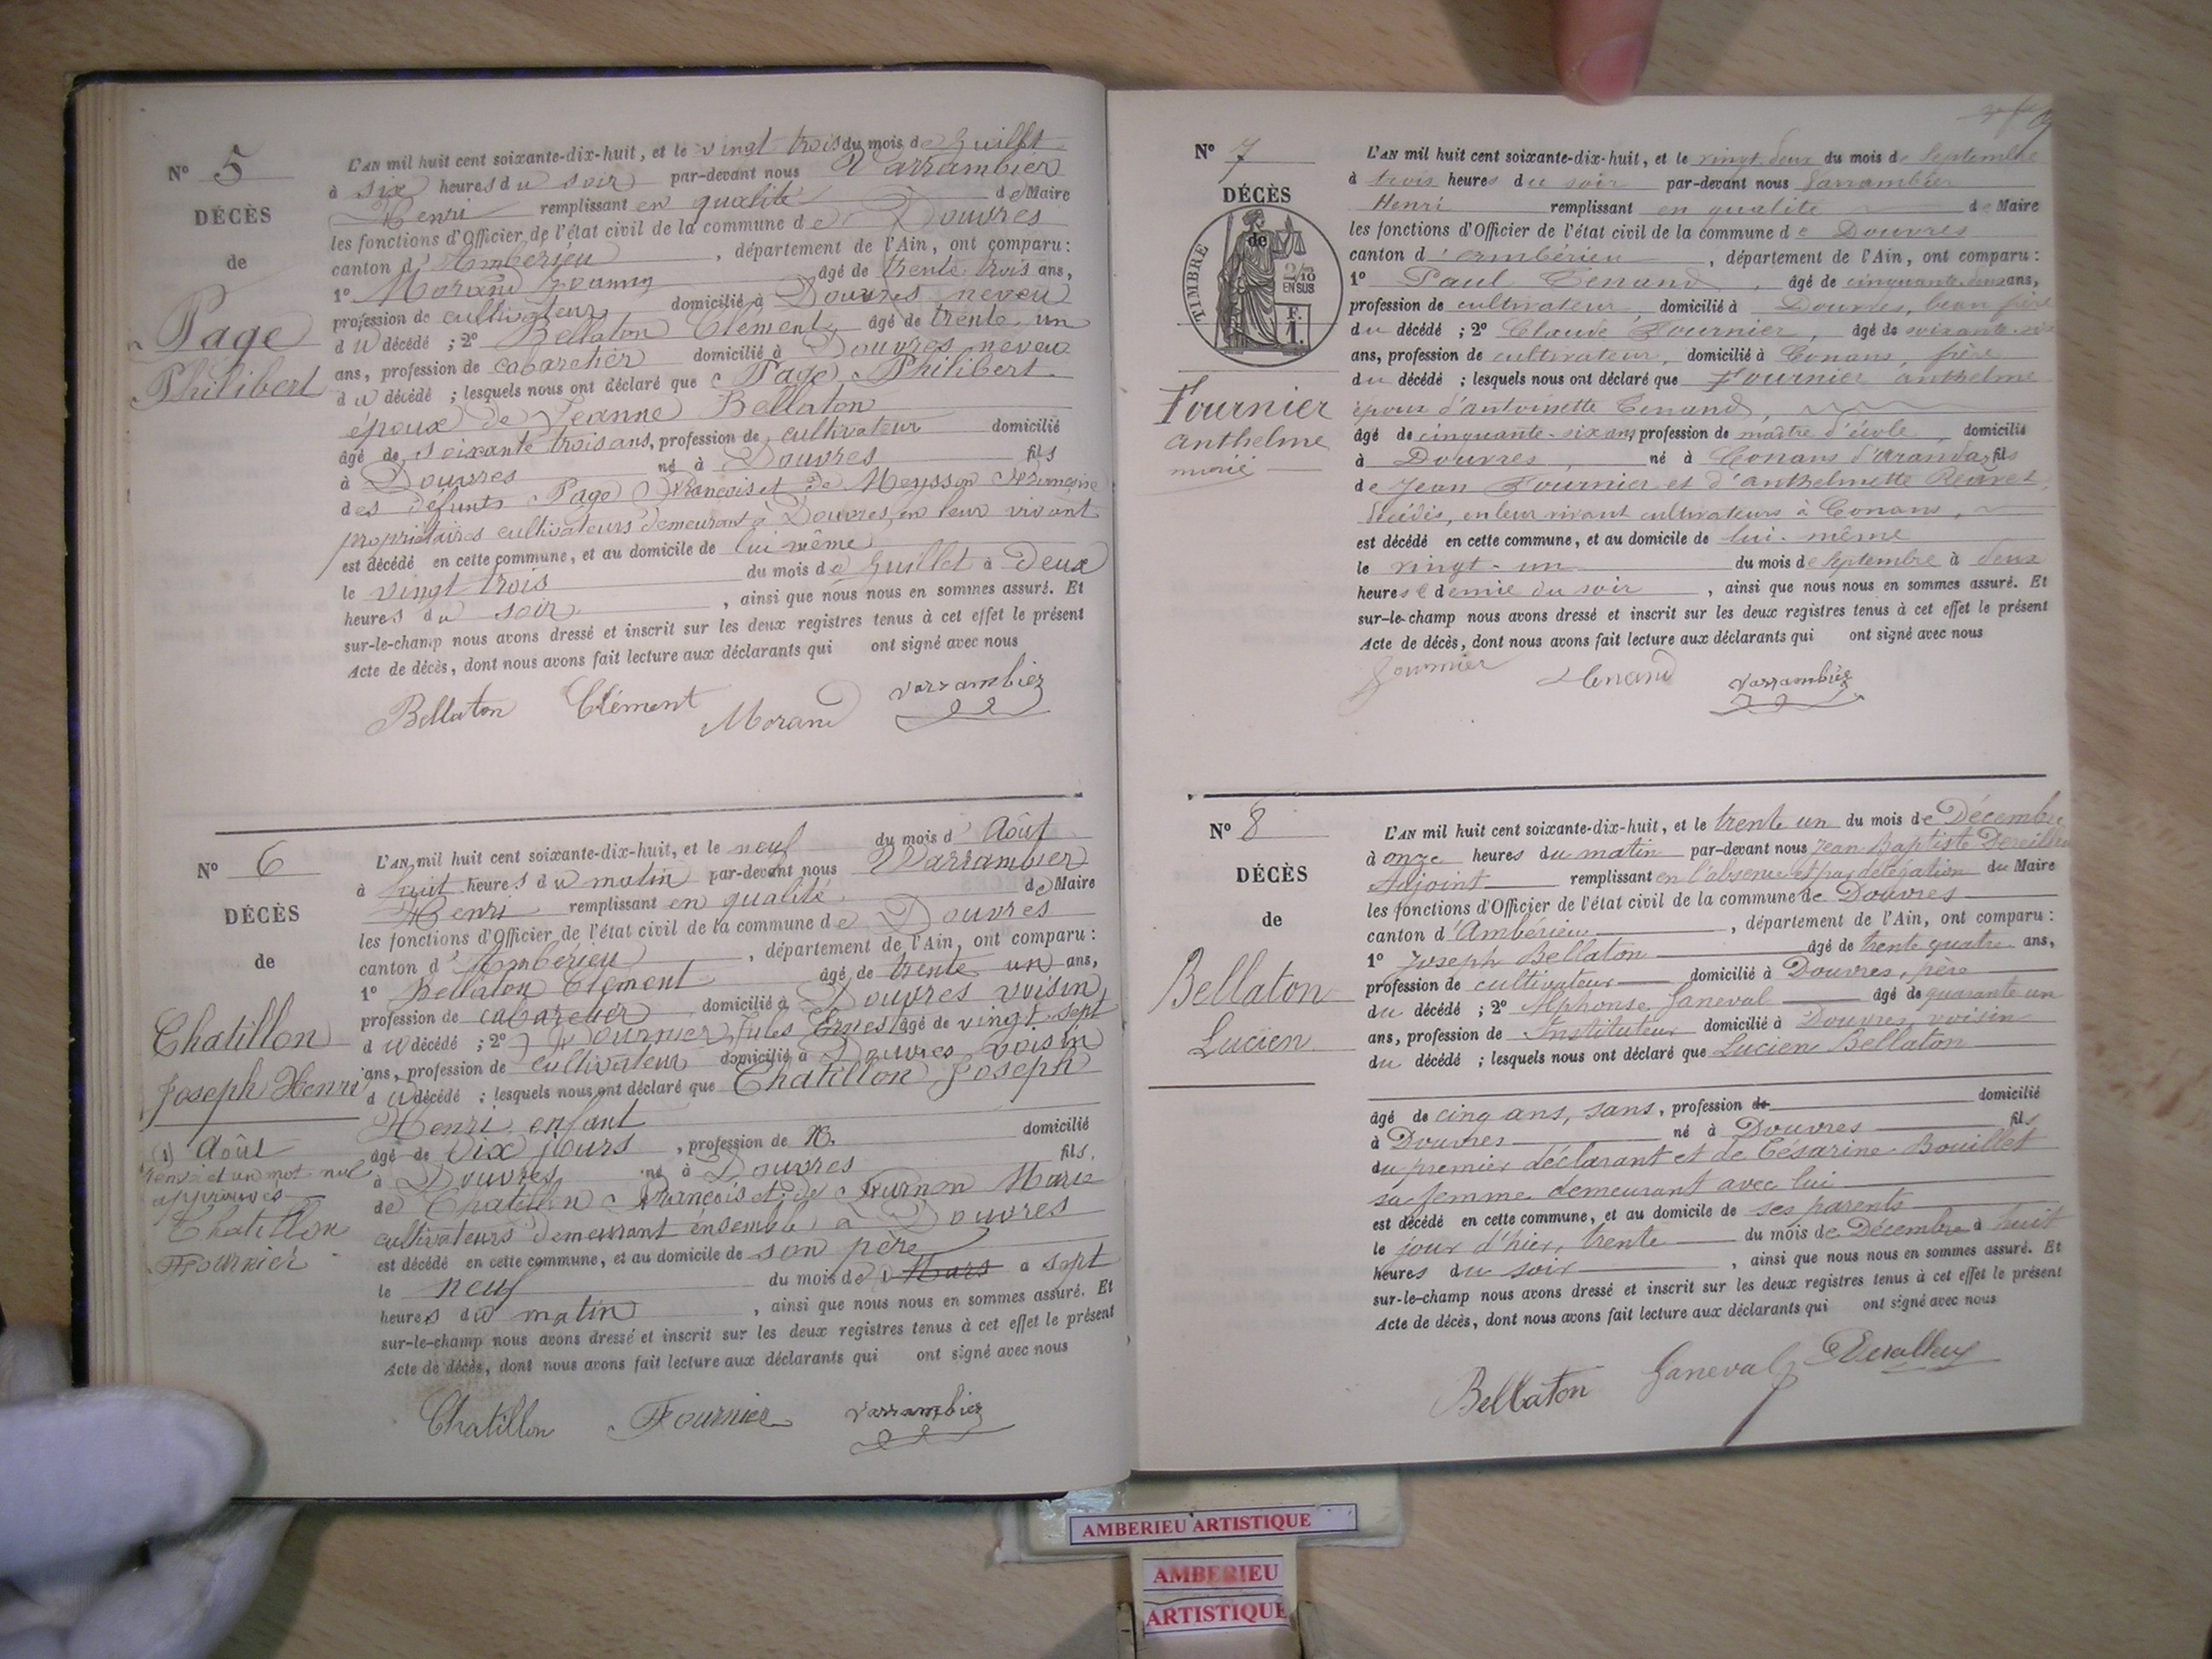 N° 5
DÉCÈS
de
Page
Philibert
L'AN mil huit cent soixante-dix-huit, et le vingt trois du mois de Juillet
à six heures du soir par-devant nous Varrambier
Henri remplissant en qualité de Maire
les fonctions d'Officier de l'état civil de la commune de Douvres
canton d'Ambérieu, département de l'Ain, ont comparu:
1° Morand Joanny âgé de trente trois ans,
profession de cultivateur domicilié à Douvres neveu
du décédé ; 2° Bellaton Clément âgé de trente un
ans, profession de cabaretier domicilié à Douvres neveu
du décédé ; lesquels nous ont déclaré que Page Philibert
époux de Jeanne Bellaton
âgé de soixante trois ans, profession de cultivateur domicilié
à Douvres né à Douvres fils
des défunts Page François et de Meysson
propriétaires cultivateurs demeurant à Douvres, en leur vivant
est décédé en cette commune, et au domicile de lui même
le vingt trois du mois de Juillet à Deux
heures du soir, ainsi que nous nous en sommes assuré. Et
sur-le-champ nous avons dressé et inscrit sur les deux registres tenus à cet effet le présent
Acte de décès, dont nous avons fait lecture aux déclarants qui ont signé avec nous
Bellaton Clément Morand Varrambier
N° 6
DÉCÈS
de
Chatillon
Joseph Henri
(1) Août
renvoi et un mot nul
approuvés
Chatillon
Fournier
L'AN mil huit cent soixante-dix-huit, et le neuf du mois d'Août
à huit heures du matin par-devant nous Varrambier
Henri remplissant en qualité de Maire
les fonctions d'Officier de l'état civil de la commune de Douvres
canton d'Ambérieu, département de l'Ain, ont comparu:
1° Bellaton Clément âgé de trente un ans,
profession de cabaretier domicilié à Douvres voisin
du décédé ; 2° Fournier Jules Ernest âgé de vingt sept
ans, profession de cultivateur domicilié à Douvres voisin
du décédé ; lesquels nous ont déclaré que Chatillon Joseph
Henri enfant
âgé de Dix jours, profession de N. domicilié
à Douvres né à Douvres fils,
de Chatillon François et de Furnon Marie
cultivateurs demeurant ensemble à Douvres
est décédé en cette commune, et au domicile de son père
le neuf du mois de Mars à sept
heures du matin, ainsi que nous nous en sommes assuré. Et
sur-le-champ nous avons dressé et inscrit sur les deux registres tenus à cet effet le présent
Acte de décès, dont nous avons fait lecture aux déclarants qui ont signé avec nous
Chatillon Fournier Varrambier
N° 7
DÉCÈS
de
TIMBRE
2/10
EN SUS
F.
1.
Fournier
anthelme
marié
L'AN mil huit cent soixante-dix-huit, et le vingt deux du mois de Septembre
à trois heures du soir par-devant nous Varrambier
Henri remplissant en qualité de Maire
les fonctions d'Officier de l'état civil de la commune de Douvres
canton d'ambérieu, département de l'Ain, ont comparu:
1° Paul Tenand, âgé de cinquante ans,
profession de cultivateur, domicilié à Douvres, beau frère
du décédé ; 2° Claude Fournier, âgé de soixante
ans, profession de cultivateur, domicilié à Conans, frère
du décédé ; lesquels nous ont déclaré que Fournier anthelme
époux d'antoinette Tenand,
âgé de cinquante-six ans, profession de maître d'école, domicilié
à Douvres, né à Conans d'arandas, fils
de Jean Fournier et d'anthelmette
décédés, en leur vivant cultivateurs à Conans,
est décédé en cette commune, et au domicile de lui-même
le vingt-un du mois de Septembre à deux
heures et demie du soir, ainsi que nous nous en sommes assuré. Et
sur-le-champ nous avons dressé et inscrit sur les deux registres tenus à cet effet le présent
Acte de décès, dont nous avons fait lecture aux déclarants qui ont signé avec nous
Fournier Tenand Varrambier
N° 8
DÉCÈS
de
Bellaton
Lucien
L'AN mil huit cent soixante-dix-huit, et le trente un du mois de Décembre
à onze heures du matin par-devant nous Jean Baptiste
Adjoint remplissant en l'absence et par délégation du Maire
les fonctions d'Officier de l'état civil de la commune de Douvres
canton d'Ambérieu, département de l'Ain, ont comparu:
1° Joseph Bellaton âgé de trente quatre ans,
profession de cultivateur domicilié à Douvres, père
du décédé ; 2° Alphonse Janeval âgé de quarante un
ans, profession de Instituteur domicilié à Douvres voisin
du décédé ; lesquels nous ont déclaré que Lucien Bellaton
âgé de cinq ans, sans, profession de domicilié
à Douvres né à Douvres fils
du premier déclarant et de Césarine Bouillet
sa femme demeurant avec lui
est décédé en cette commune, et au domicile de ses parents
le jour d'hier, trente du mois de Décembre à huit
heures du soir, ainsi que nous nous en sommes assuré. Et
sur-le-champ nous avons dressé et inscrit sur les deux registres tenus à cet effet le présent
Acte de décès, dont nous avons fait lecture aux déclarants qui ont signé avec nous
Bellaton Janeval
AMBERIEU ARTISTIQUE
AMBERIEU
ARTISTIQUE